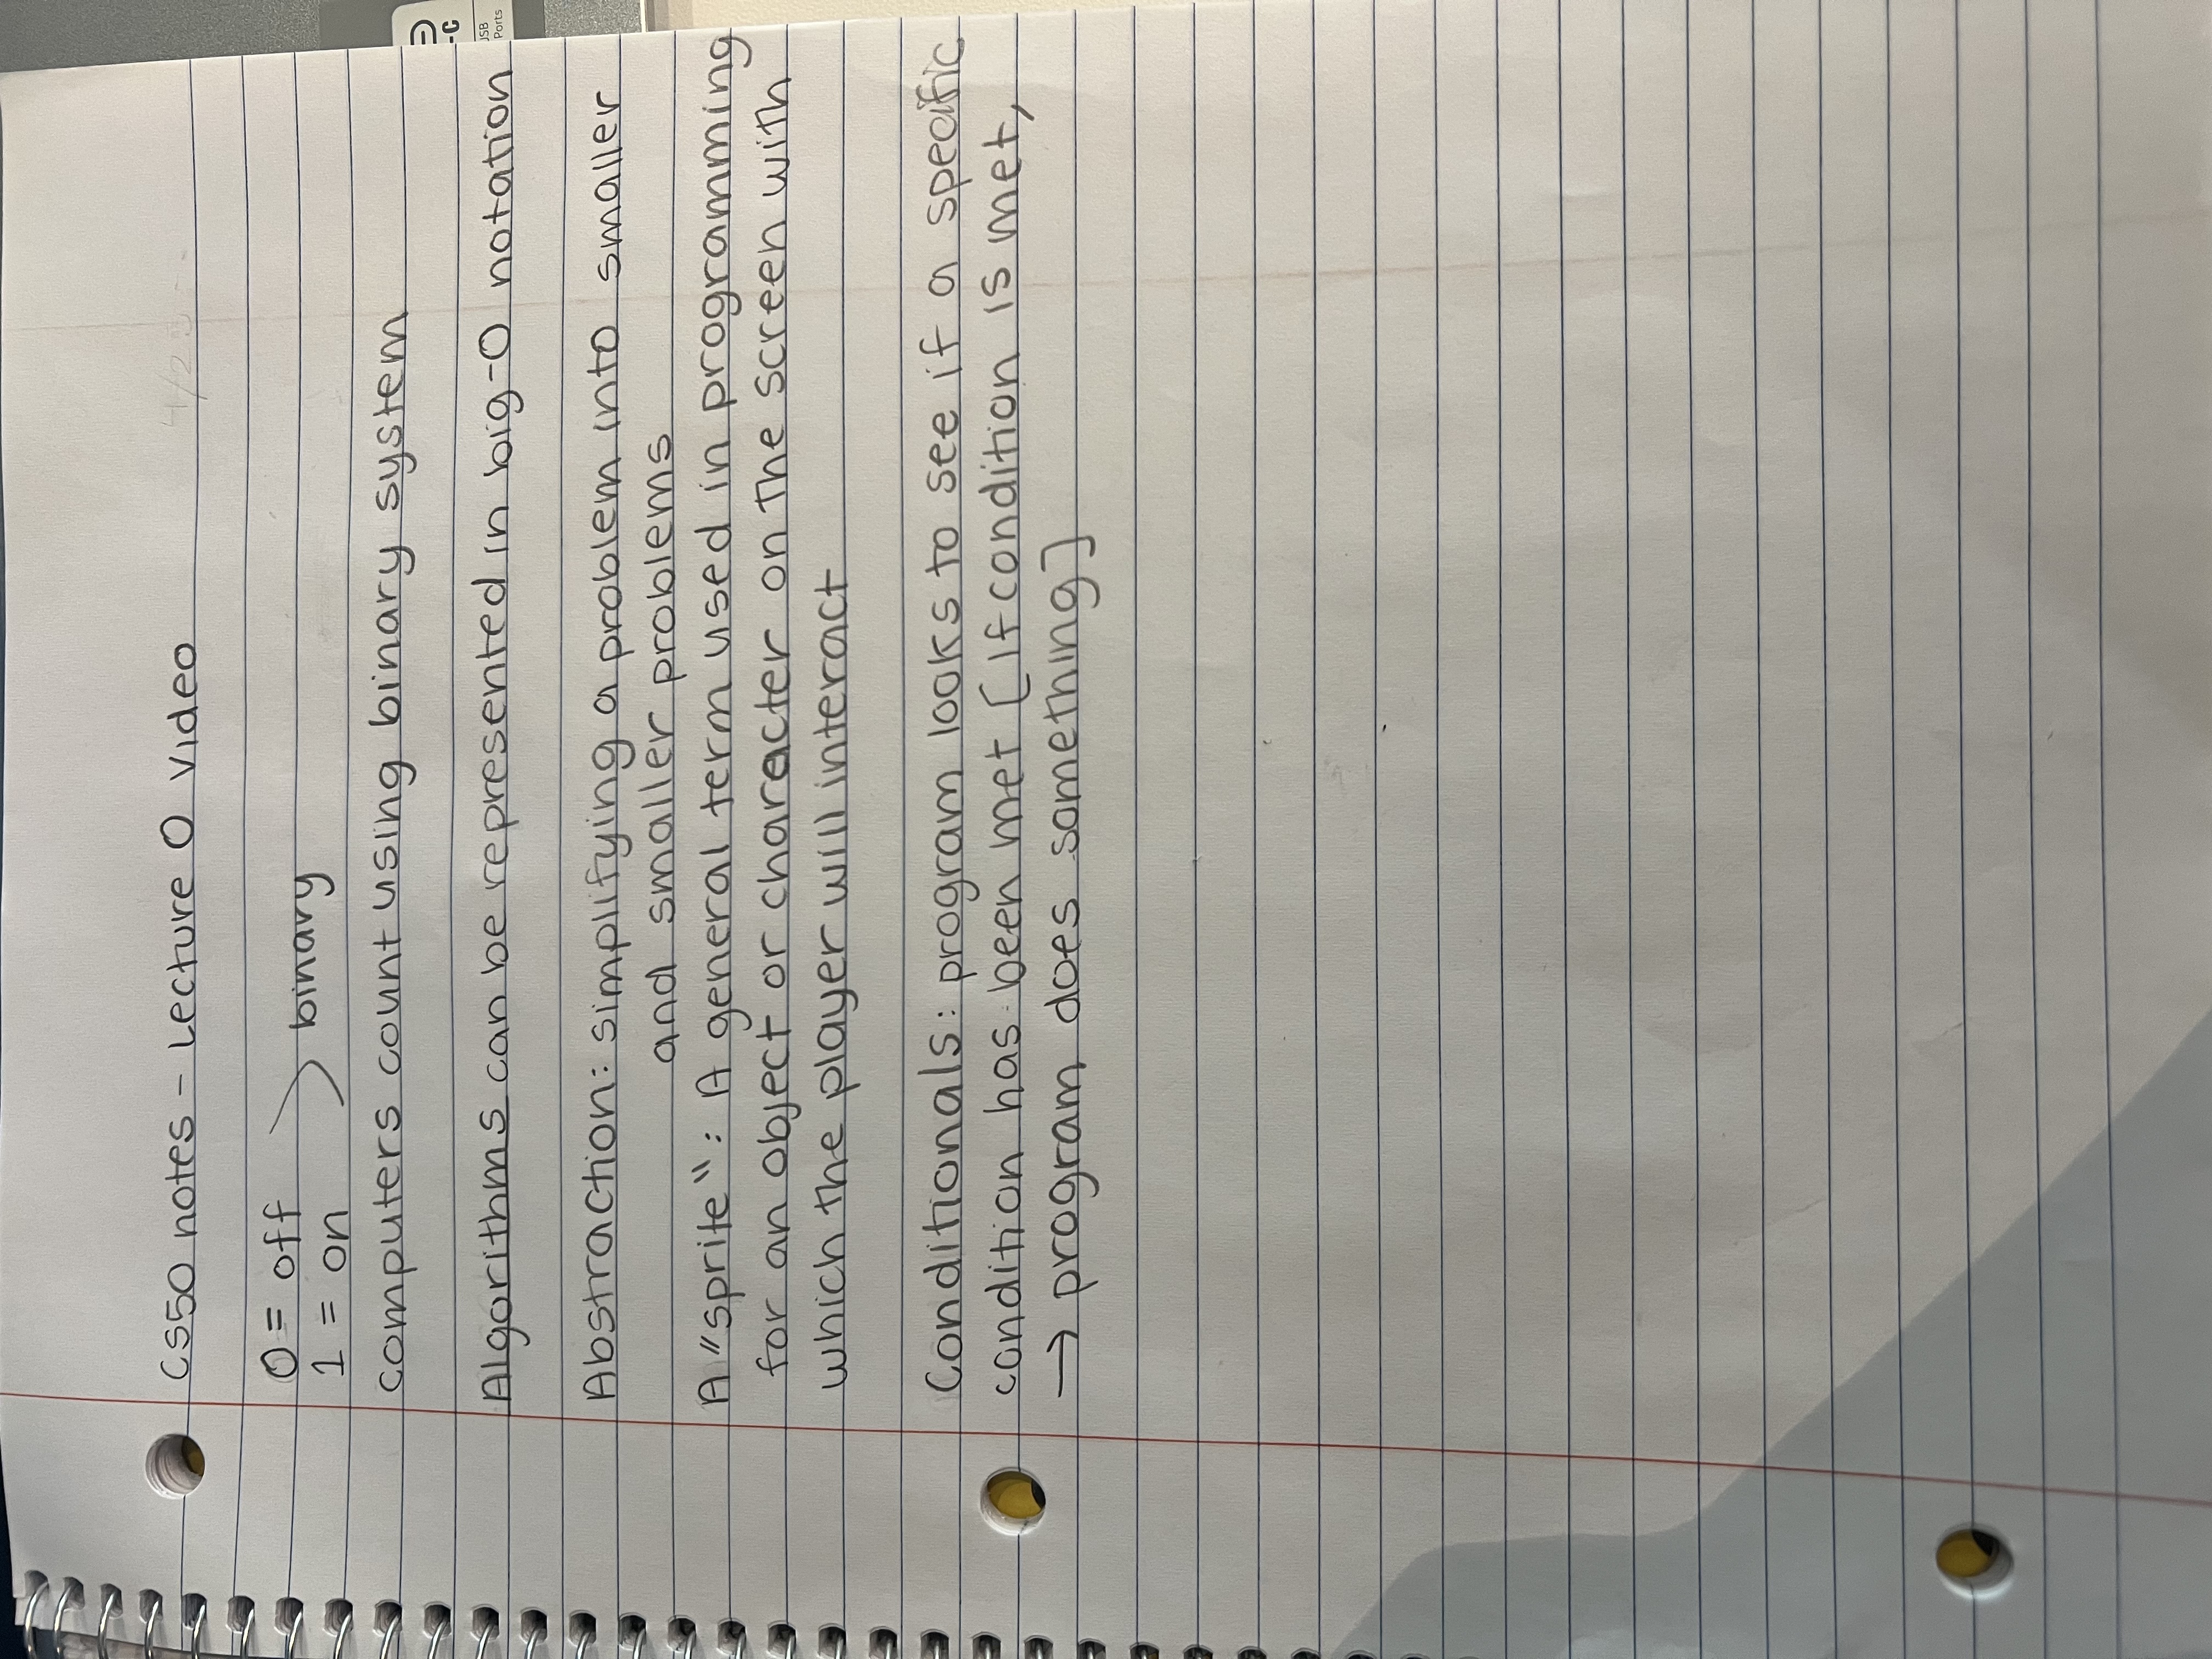 CS50 notes - Lecture 0 Video
0 = off
1 = on
binary
computers count using binary system
Algorithms can be represented in big-O notation
Abstraction: simplifying a problem into smaller
and smaller problems
A "sprite": A general term used in programming
for an object or character on the screen with
which the player will interact
Conditionals: program looks to see if a specific
condition has been met [if condition is met,
→ program does something]
-C
USB
Ports